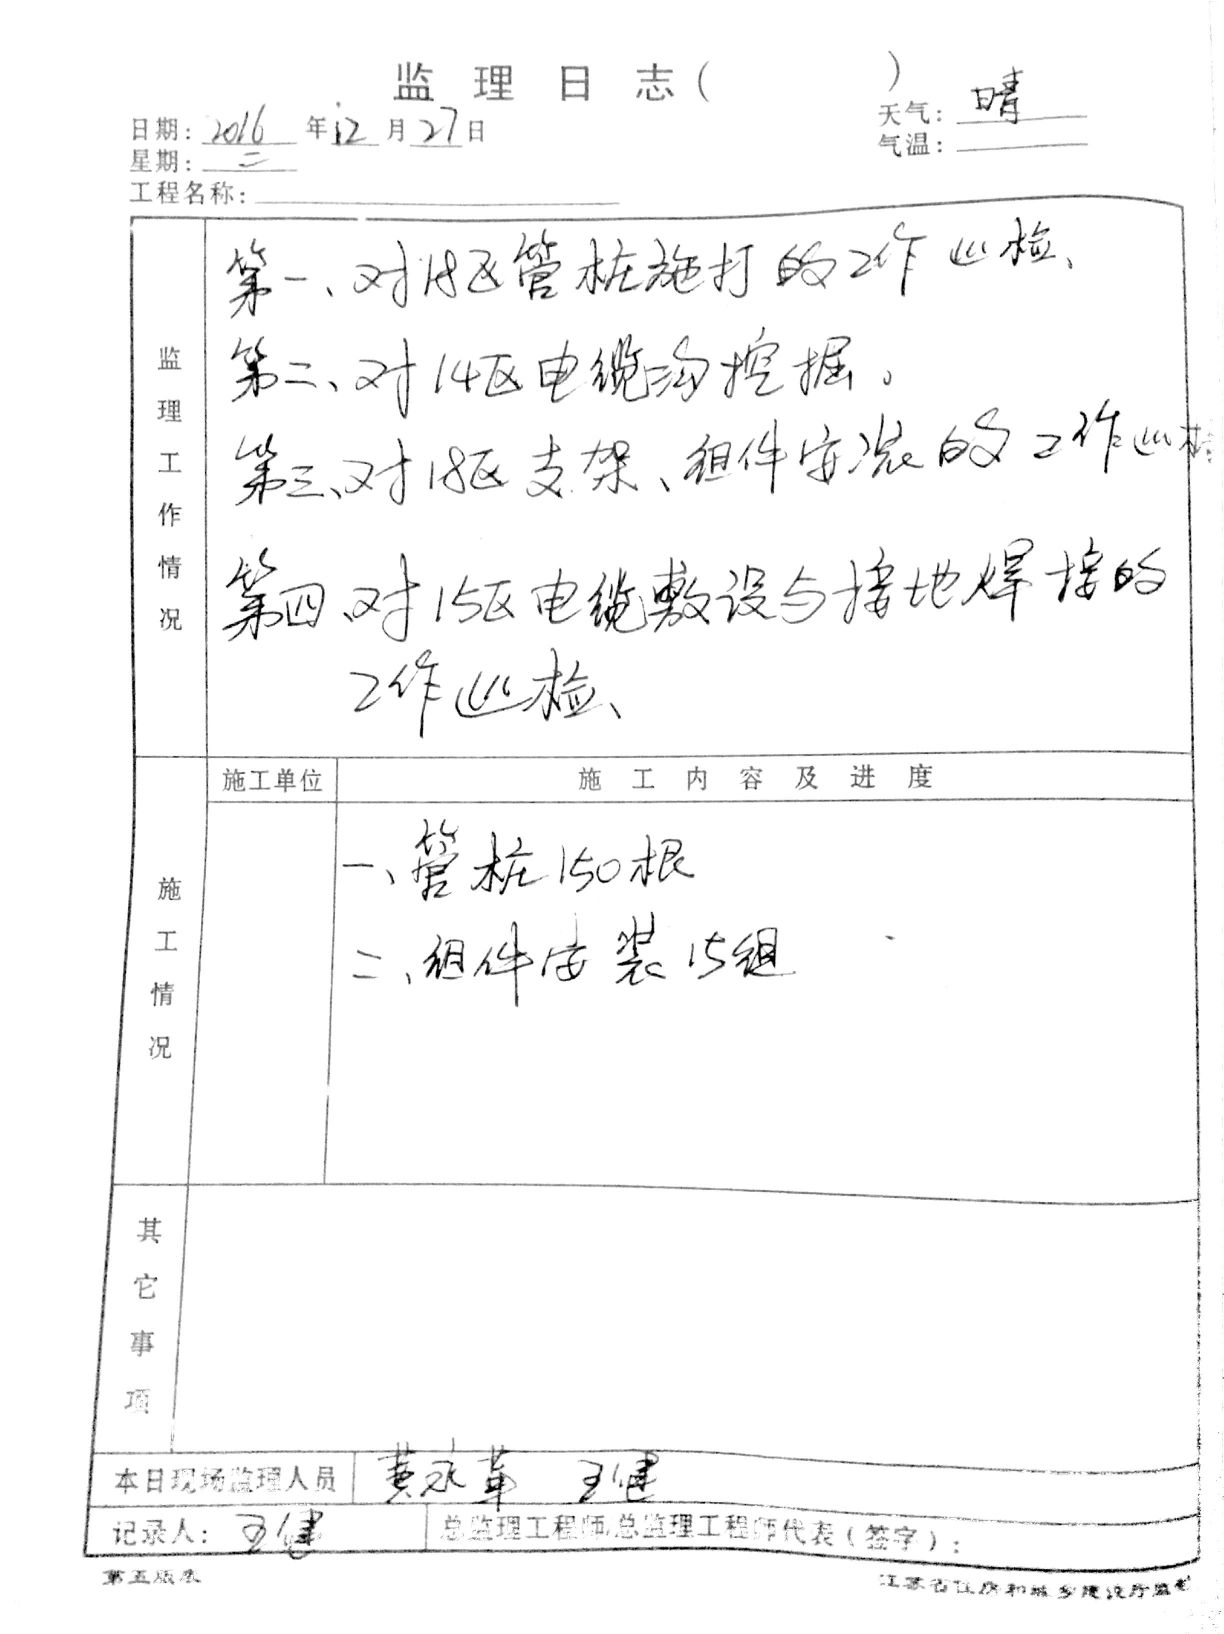 监理日志（ ）
日期：2016年12月27日
天气：晴
星期：二
气温：
工程名称：
监理工作情况
第一、对18区管桩施打的工作巡检、
第二、对14区电缆沟挖掘。
第三、对18区支架、组件安装的工作巡检
第四、对15区电缆敷设与接地焊接的
工作巡检、
施工单位
施工内容及进度
施工情况
一、管桩150根
二、组件安装15组
其它事项
本日现场监理人员
黄永革 王健
记录人：王健
总监理工程师/总监理工程师代表（签字）：
第五版表
江苏省住房和城乡建设厅监制